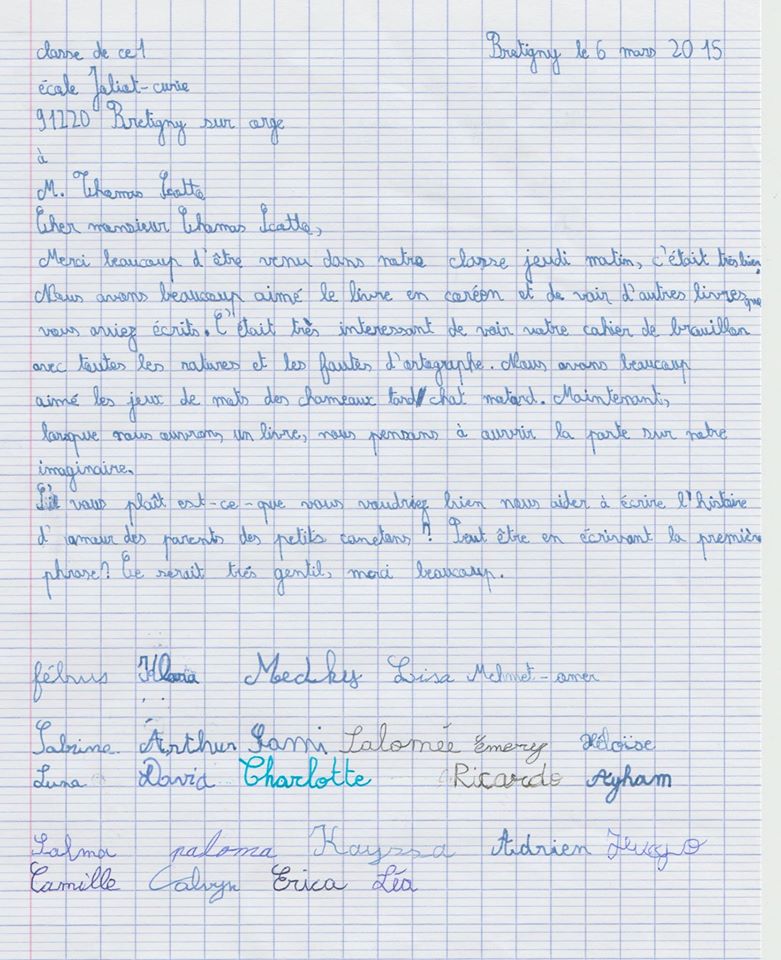 classe de ce1 Bretigny le 6 mars 2015
école Joliot-curie
91220 Bretigny sur orge
à
M. Thomas Scotto
Cher monsieur Thomas Scotto,
Merci beaucoup d'être venu dans notre classe jeudi matin, c'était très bien.
Nous avons beaucoup aimé le livre en coréen et de voir d'autres livres que
vous aviez écrits. C'était très interessant de voir votre cahier de brouillon
avec toutes les ratures et les fautes d'ortographe. Nous avons beaucoup
aimé les jeux de mots des chameaux tard/chat motard. Maintenant,
lorsque nous ouvrons un livre, nous pensons à ouvrir la porte sur notre
imaginaire.
S'il vous plaît est-ce-que vous voudriez bien nous aider à écrire l'histoire
d'amour des parents des petits canetons ? Peut être en écrivant la première
phrase? Ce serait très gentil, merci beaucoup.
fébus Klara Medhy Lisa Mehmet-omer
Sabrina Arthur Sami Salomée Emery Héloïse
Luna David Charlotte Ricardo Ayham
Salma paloma Kayssa Adrien Hugo
Camille Calvyn Erica Léa